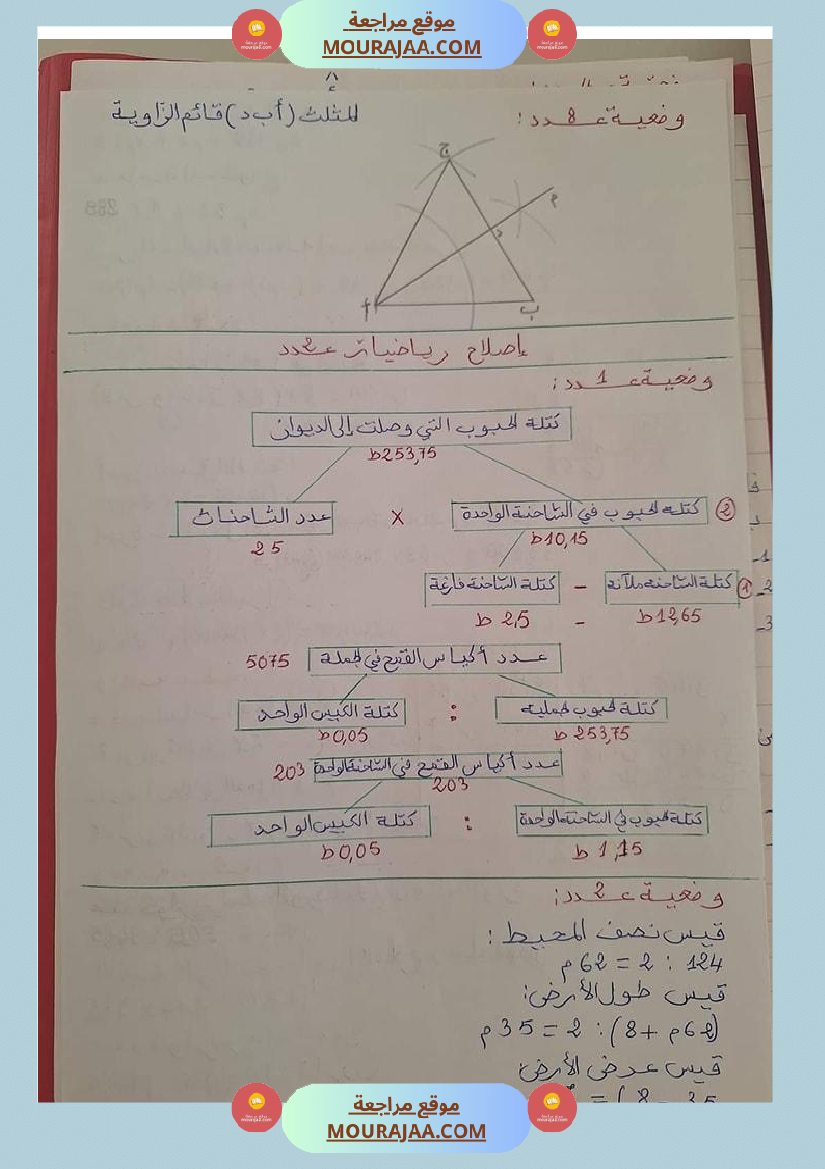 موقع مراجعة
MOURAJAA.COM
وضعية عدد 8:
المثلث (أ ب د) قائم الزاوية
ج
م
د
أ
ب
إصلاح رياضيات عدد 2
وضعية عدد 1:
كتلة الحبوب التي وصلت إلى الديوان
253,75 ط
② كتلة الحبوب في الشاحنة الواحدة × عدد الشاحنات
10,15 ط
25
① كتلة الشاحنة ملآنة - كتلة الشاحنة فارغة
12,65 ط - 2,5 ط
عدد أكياس القمح في الجملة 5075
كتلة الحبوب الجملية : كتلة الكيس الواحد
253,75 ط
0,05 ط
عدد أكياس القمح في الشاحنة الواحدة 203
203
كتلة الحبوب في الشاحنة الواحدة : كتلة الكيس الواحد
1,15 ط
0,05 ط
وضعية عدد 2:
قيس نصف المحيط:
124 : 2 = 62 م
قيس طول الأرض:
(62م + 8) : 2 = 35 م
قيس عرض الأرض:
موقع مراجعة
MOURAJAA.COM